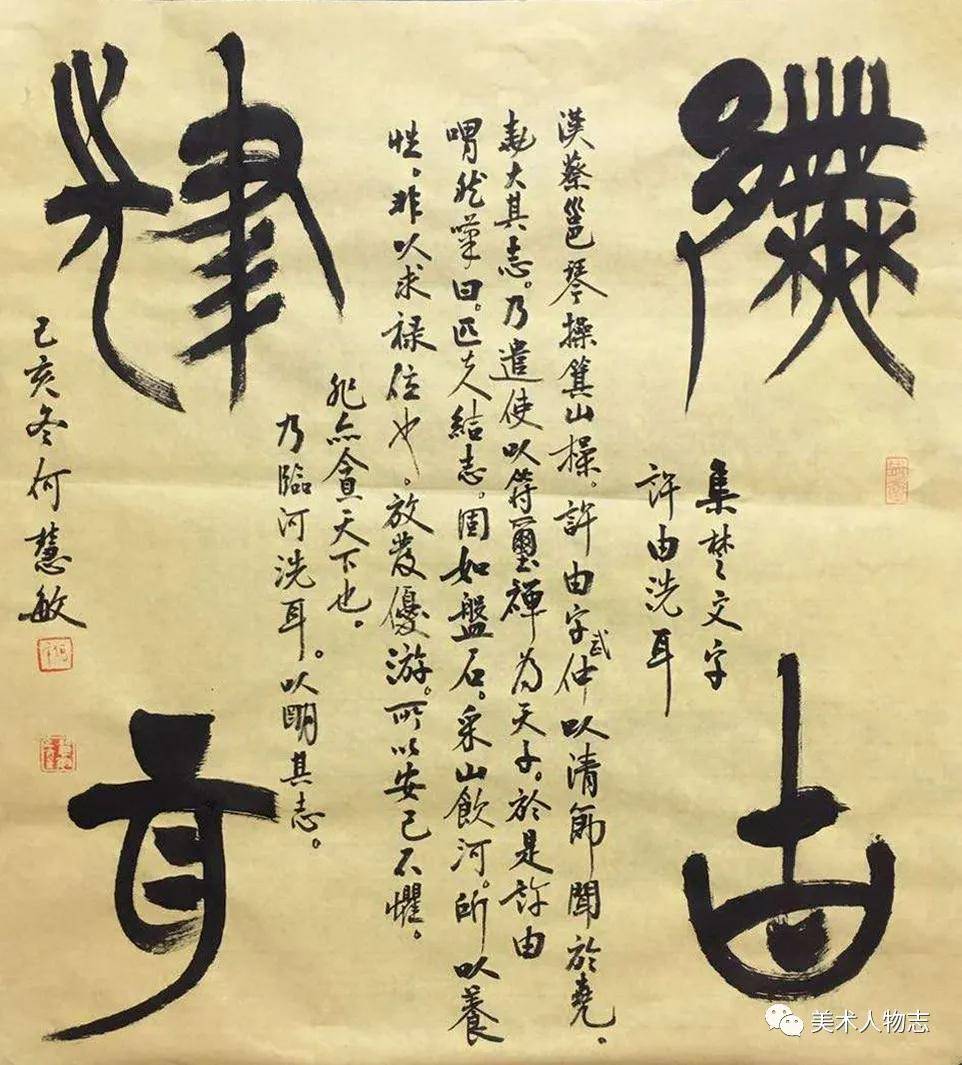 許由
洗耳
集楚文字
許由洗耳
漢蔡邕琴操箕山操。許由字武仲以清節聞於堯。
堯大其志。乃遣使以符璽禪為天子。於是許由
喟然嘆曰。匹夫結志。固如盤石。采山飲河。所以養
性。非以求禄位也。放發優游。所以安己不懼。
非以貪天下也。
乃臨河洗耳。以明其志。
己亥冬何慧敏
美术人物志